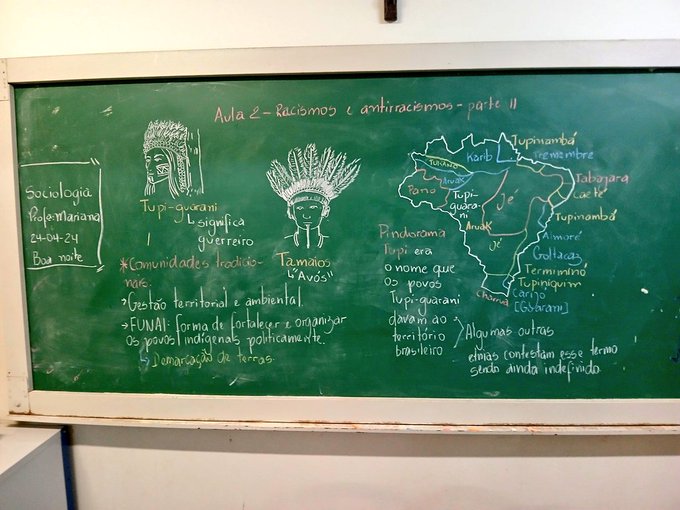 Aula 2 - Racismos e antirracismos - parte II
Sociologia
Profª Mariana
24-04-24
Boa noite
Tupi-guarani
↳ significa
guerreiro
Tamaios
↳ "Avós"
*Comunidades tradicio-
nais:
→ Gestão territorial e ambiental.
→ FUNAI: forma de fortalecer e organizar
os povos indígenas politicamente.
↳ Demarcação de terras.
Pindorama
Tupi era
o nome que
os povos
Tupi-guarani
davam ao
território
brasileiro
Algumas outras
etnias contestam esse termo
sendo ainda indefinido.
Tukano
Karib
Aruak
Pano
Tupi-
guara-
ni
Jê
Aruak
Jê
Charrua
Tupinambá
Teemembre
Tabajara
Caeté
Tupinambá
Aimoré
Goitacaz
Termiminó
Tupiniquim
Carijó
[Guarani]